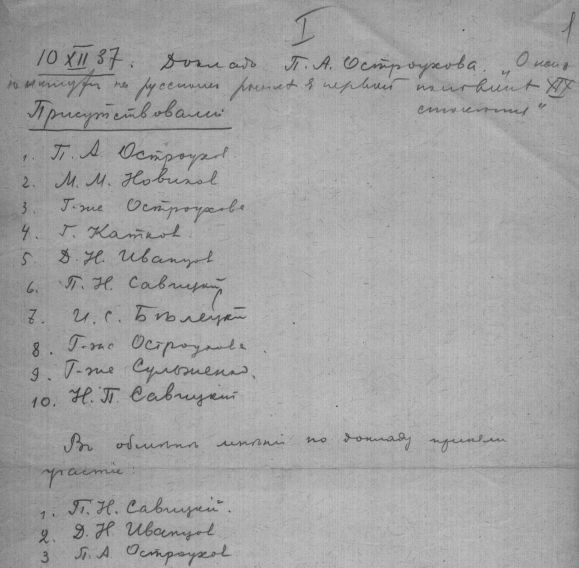 I
1
10 XII 37. Доклад П. А. Остроухова. „О
на русском рынке в первой половине XIX
Присутствовали столетия"
1. П. А Остроухов
2. М. М. Новиков
3. Г-жа Остроухова
4. Г. Катков.
5 Д. Н. Иванцов
6. П. Н. Савицкий
7. И. С. Бѣлецкий
8. Г-жа Остроухова.
9. Г-жа
10. Н. П. Савицкий
Въ обмѣнѣ мнѣній по докладу приняли
участіе:
1. П. Н. Савицкій.
2. Д. Н Иванцов
3 П. А Остроухов